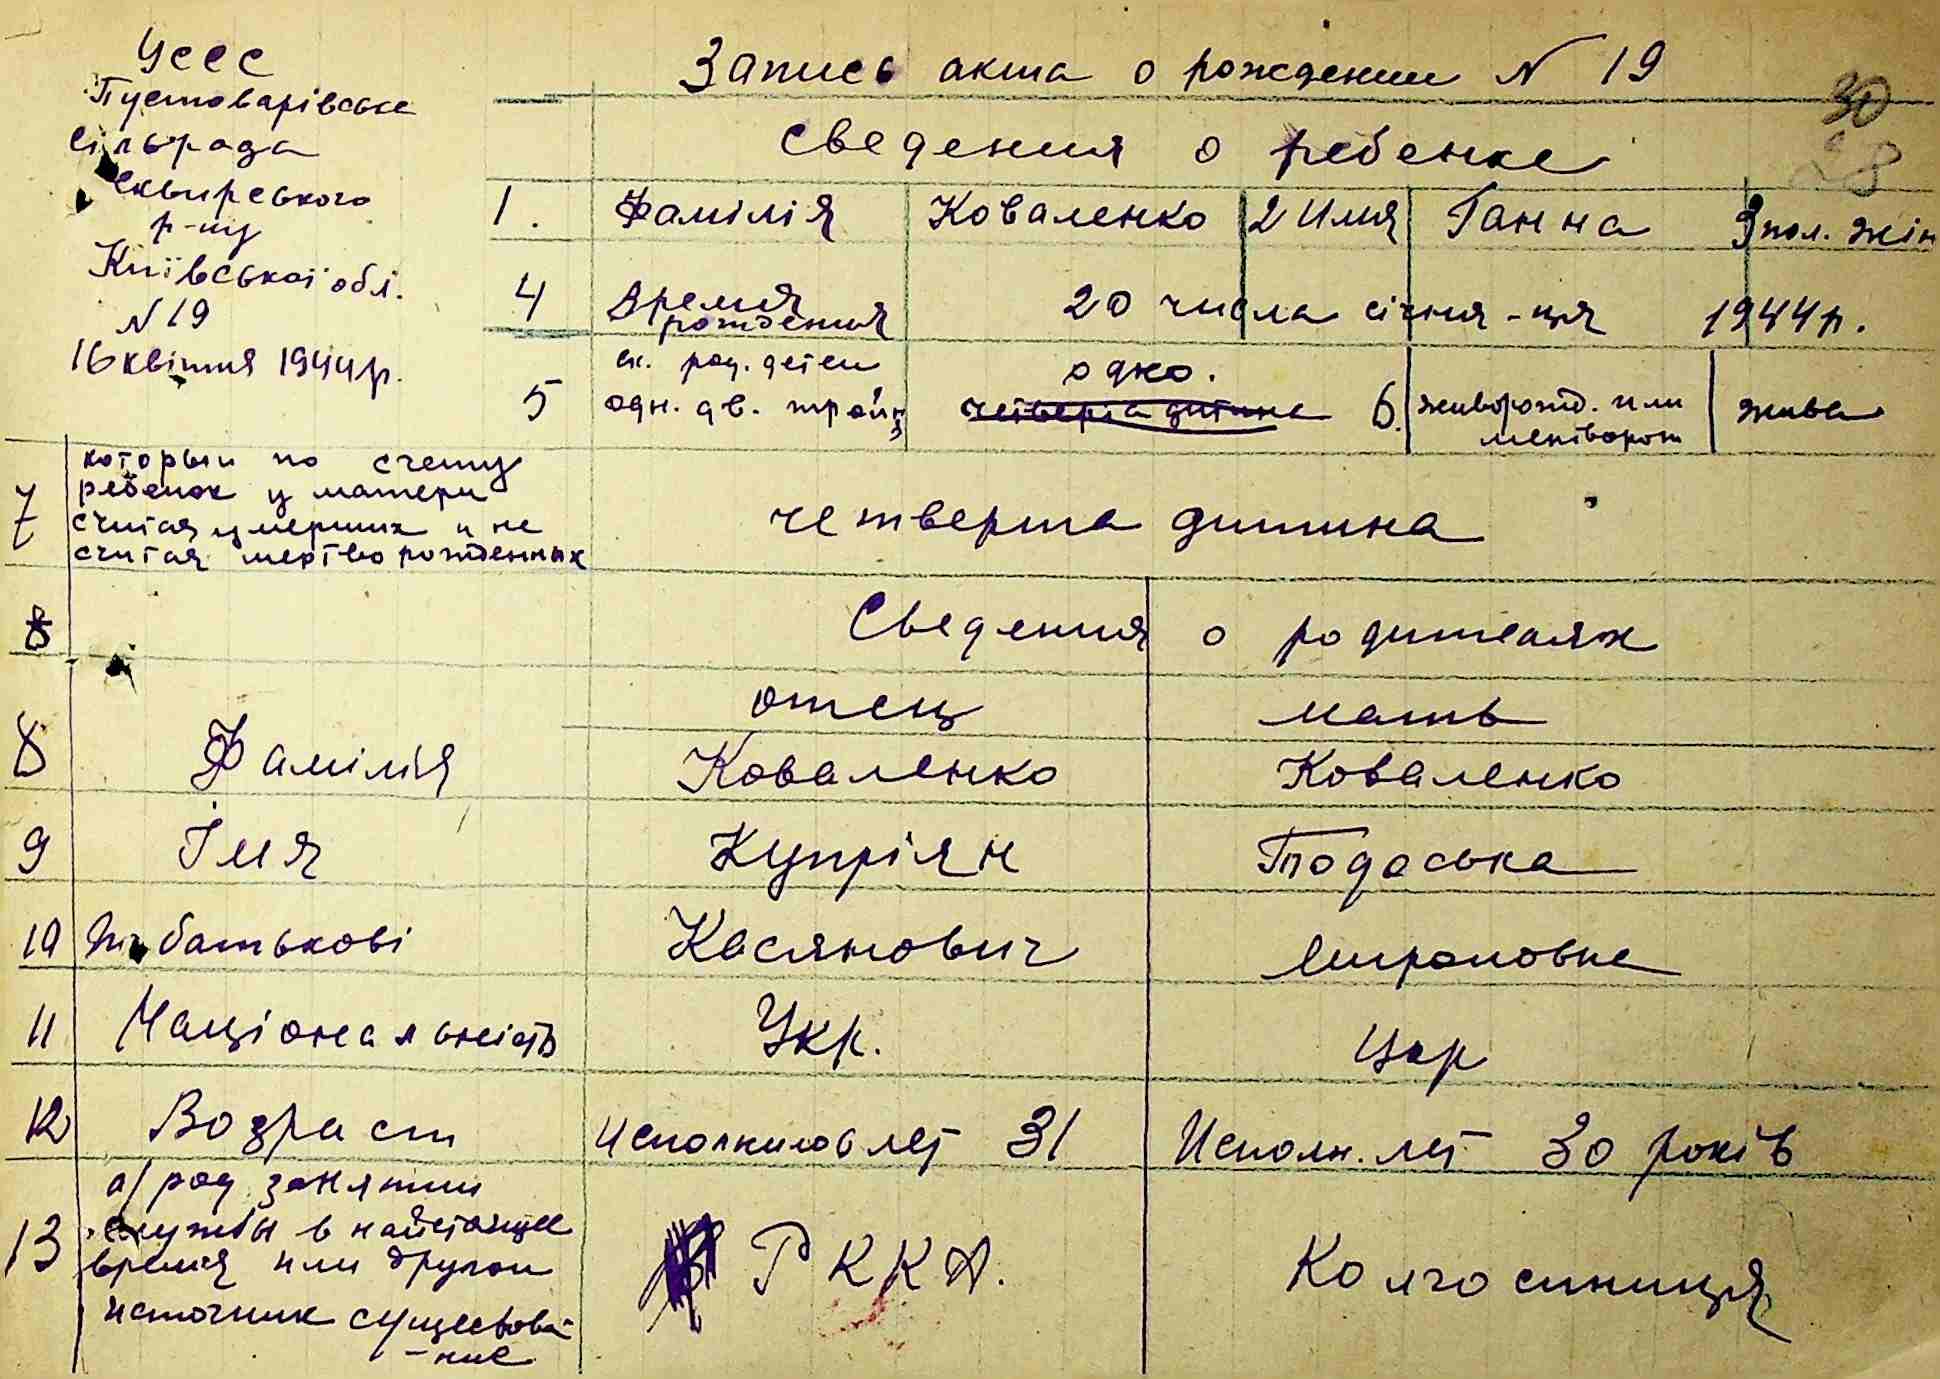 УССС
Пустоварівське
сільрада
Сквирського
р-ну
Київської обл.
N 19
16 квітня 1944 р.
Запись акта о рождении N 19
30
28
Сведения о ребенке
1. Фамілія Коваленко 2 Имя Ганна 3 пол. жін
4 Время рождения 20 числа січня - ця 1944 р.
5 ск. род. детей одн. дв. тройн одно. четверта дитина 6. живорожд. или мертворож жива
7 который по счету
ребенок у матери
считая умерших и не
считая мертворожденных
четверта дитина
8 Сведения о родителях
отец мать
8 Фамілія Коваленко Коваленко
9 Імя Купріян Тодоська
10 По батькові Касянович Мироновна
11 Національність Укр. Укр
12 Возраст Исполнилос лет 31 Исполн. лет 30 років
13 а/ род занятии
службы в найстоящее
время или другои
источник существова-
-ние
В РККА. Колгоспниця